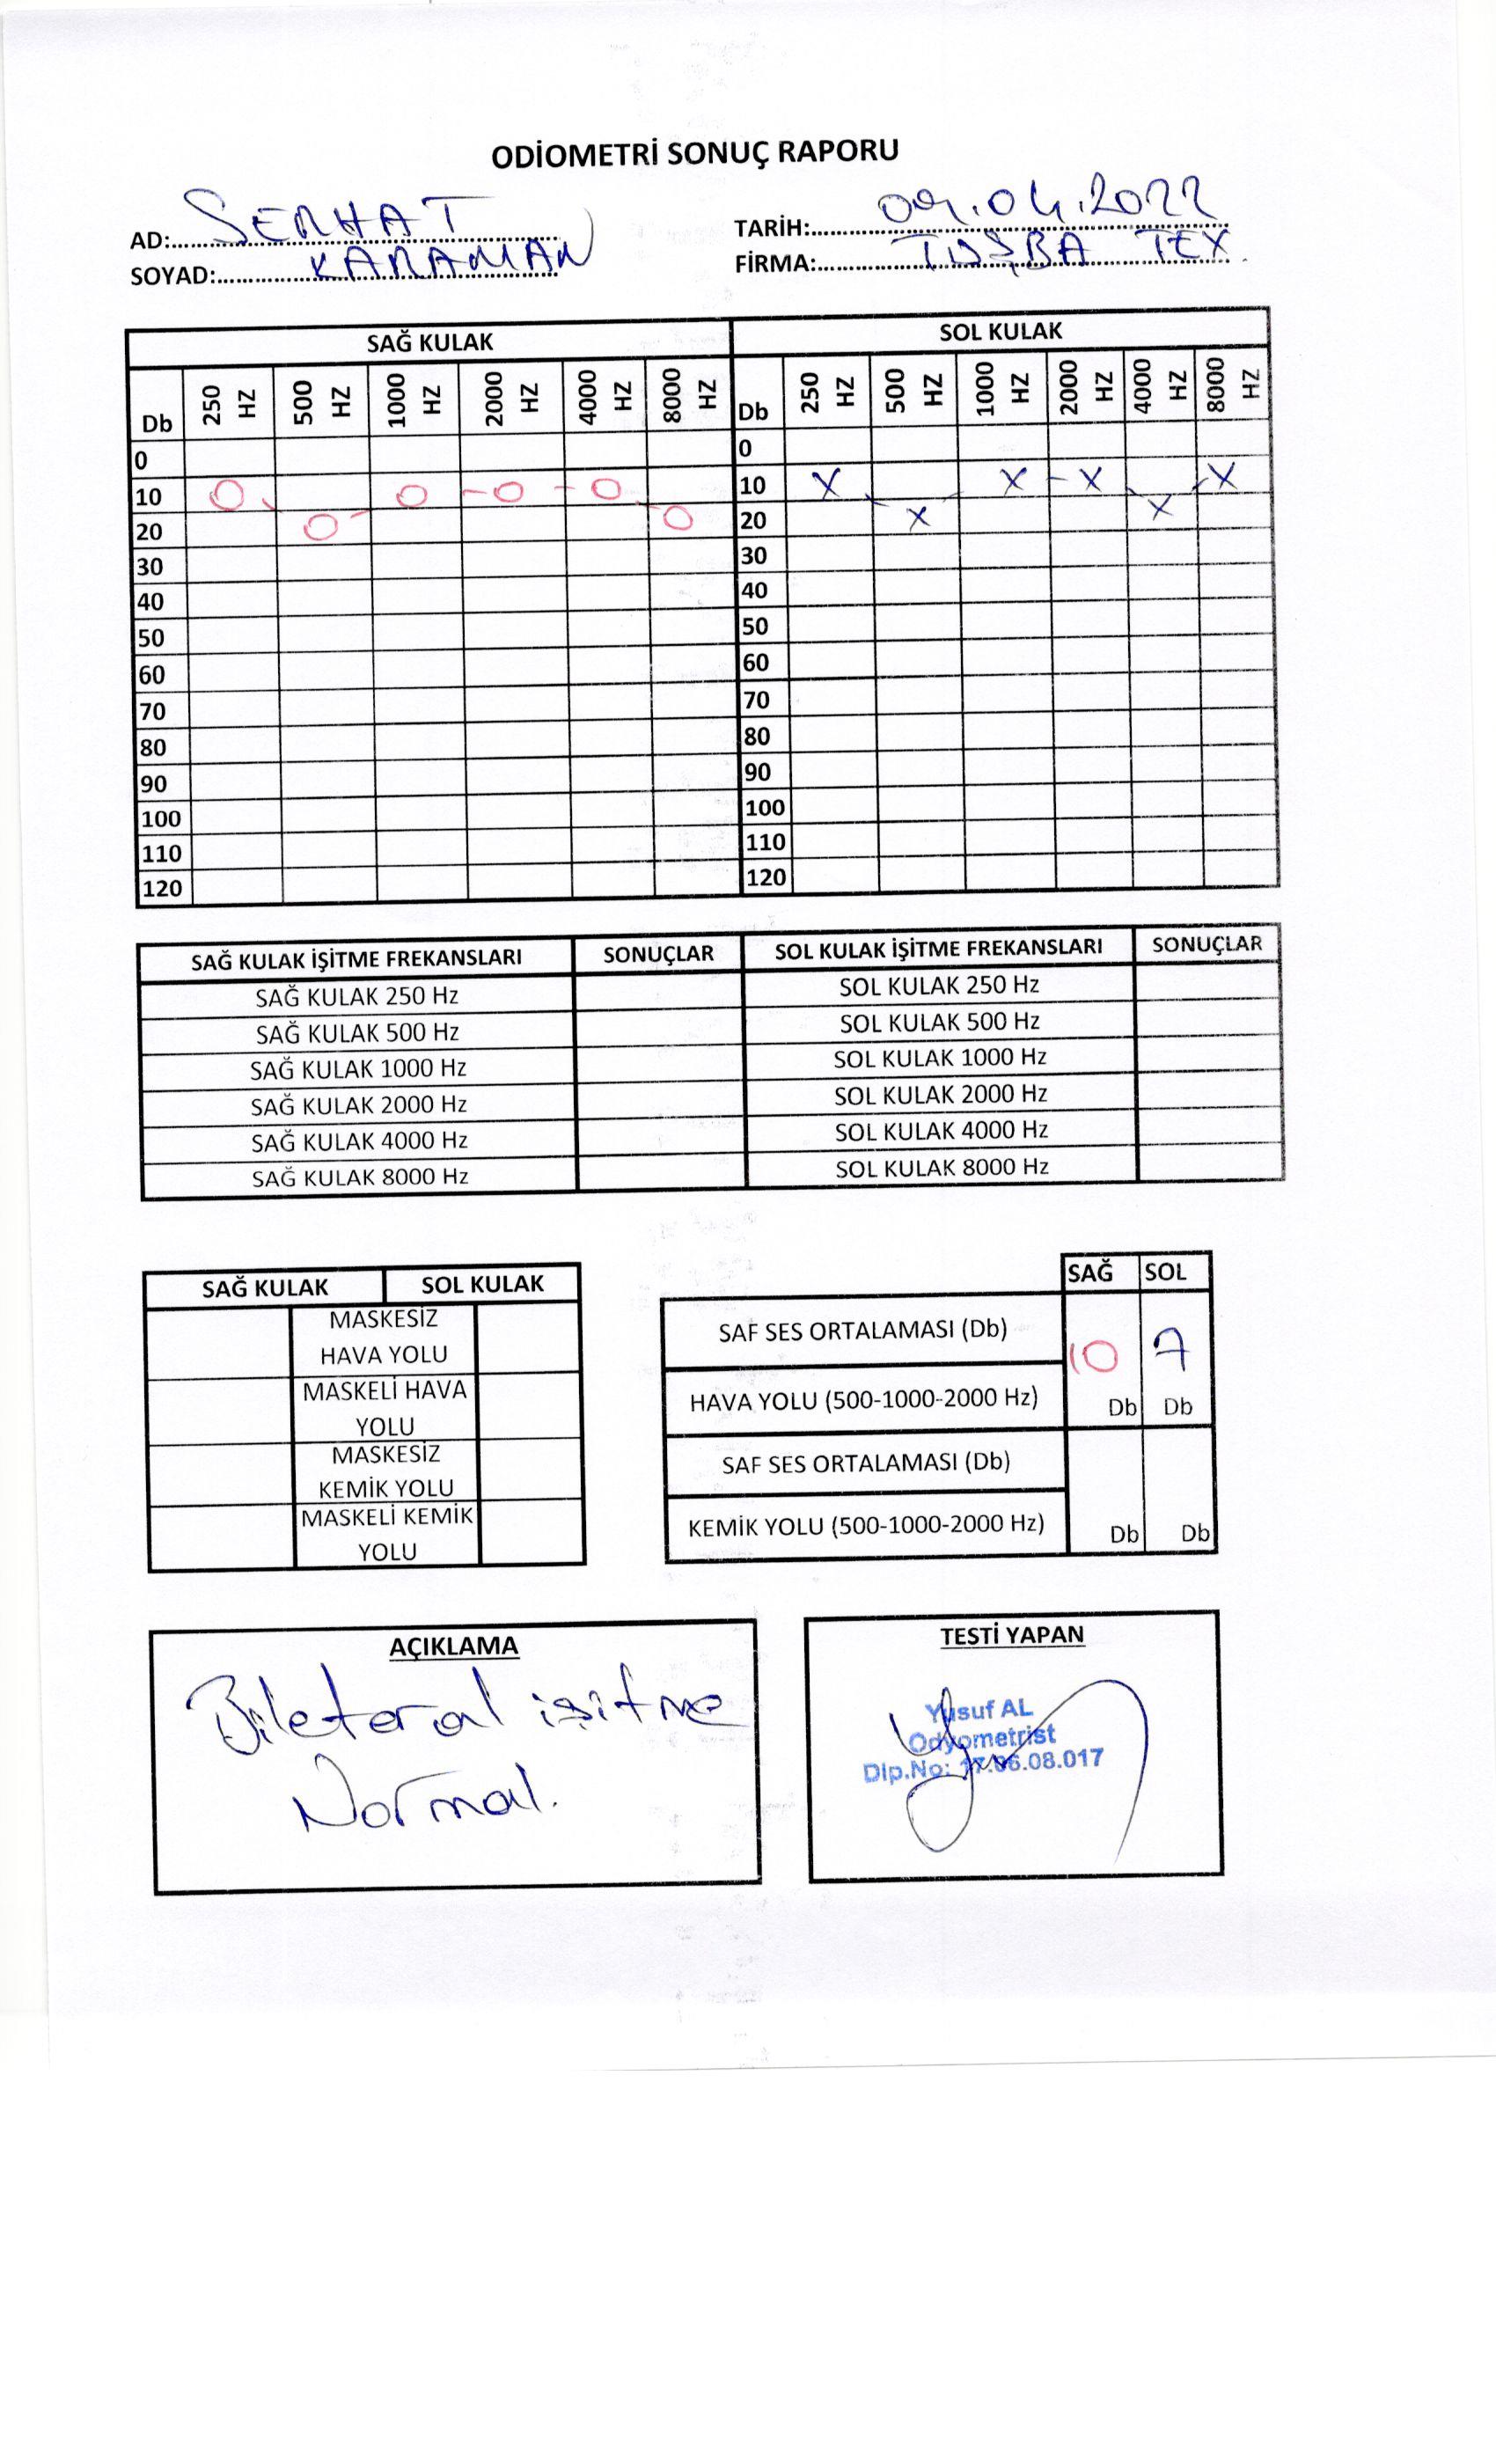 ODİOMETRİ SONUÇ RAPORU
AD: SERHAT
SOYAD: KARAMAN
TARİH: 09.04.2022
FİRMA: TUŞBA TEX.
SAĞ KULAK SOL KULAK
Db 250 HZ 500 HZ 1000 HZ 2000 HZ 4000 HZ 8000 HZ Db 250 HZ 500 HZ 1000 HZ 2000 HZ 4000 HZ 8000 HZ
0 0
10 O O O O 10 X X X X
20 O O 20 X X
30 30
40 40
50 50
60 60
70 70
80 80
90 90
100 100
110 110
120 120
SAĞ KULAK İŞİTME FREKANSLARI SONUÇLAR SOL KULAK İŞİTME FREKANSLARI SONUÇLAR
SAĞ KULAK 250 Hz SOL KULAK 250 Hz
SAĞ KULAK 500 Hz SOL KULAK 500 Hz
SAĞ KULAK 1000 Hz SOL KULAK 1000 Hz
SAĞ KULAK 2000 Hz SOL KULAK 2000 Hz
SAĞ KULAK 4000 Hz SOL KULAK 4000 Hz
SAĞ KULAK 8000 Hz SOL KULAK 8000 Hz
SAĞ KULAK SOL KULAK
MASKESİZ
HAVA YOLU
MASKELİ HAVA
YOLU
MASKESİZ
KEMİK YOLU
MASKELİ KEMİK
YOLU
SAĞ SOL
SAF SES ORTALAMASI (Db) 10 7
HAVA YOLU (500-1000-2000 Hz) Db Db
SAF SES ORTALAMASI (Db)
KEMİK YOLU (500-1000-2000 Hz) Db Db
AÇIKLAMA
Bileteral işitme
Normal.
TESTİ YAPAN
Yusuf AL
Odyometrist
Dip.No: 17.06.08.017